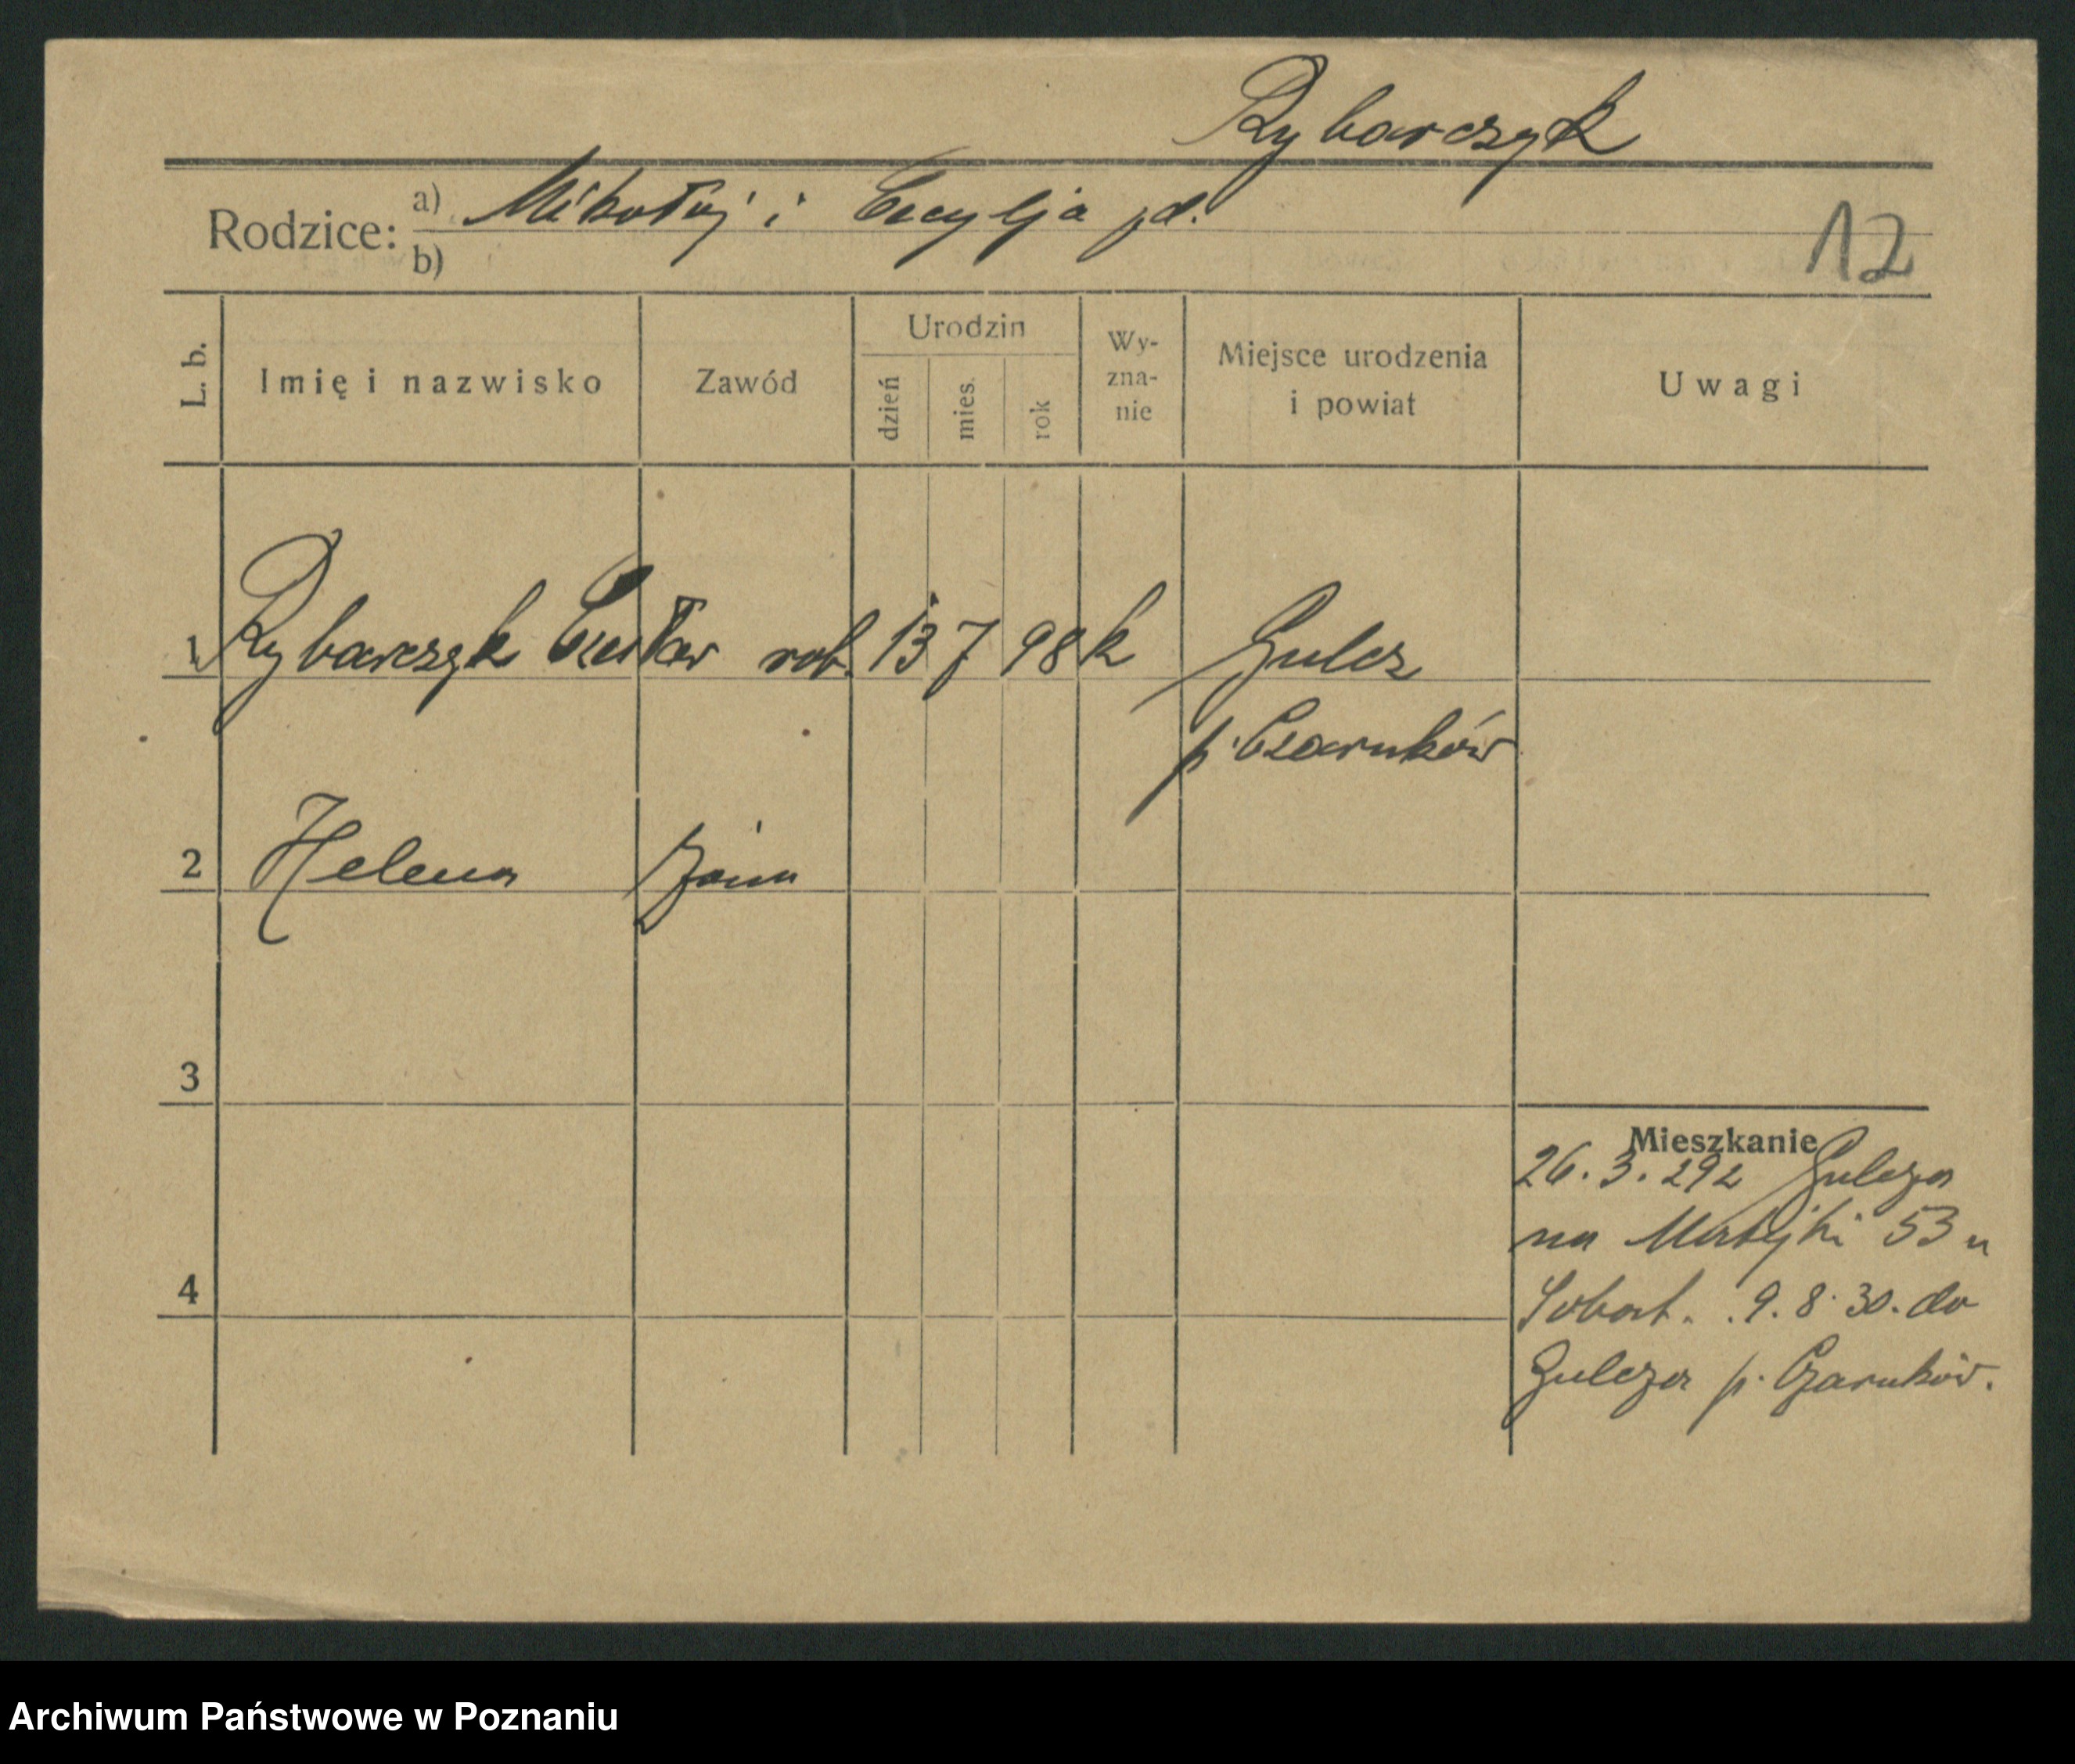 Rybarczyk
Rodzice: a) Mikołaj i Cecylja jd.
b)
12
L. b. Imię i nazwisko Zawód Urodzin dzień mies. rok Wy-zna-nie Miejsce urodzenia i powiat Uwagi
1 Rybarczyk Czesław rob. 13 7 98 k Gulcz
p. Czarnków
2 Helena
3
Mieszkanie
26. 3. 292 Gulcza
na Matejki 53 u
4
9. 8. 30. do
Gulcza p. Czarnków.
Archiwum Państwowe w Poznaniu